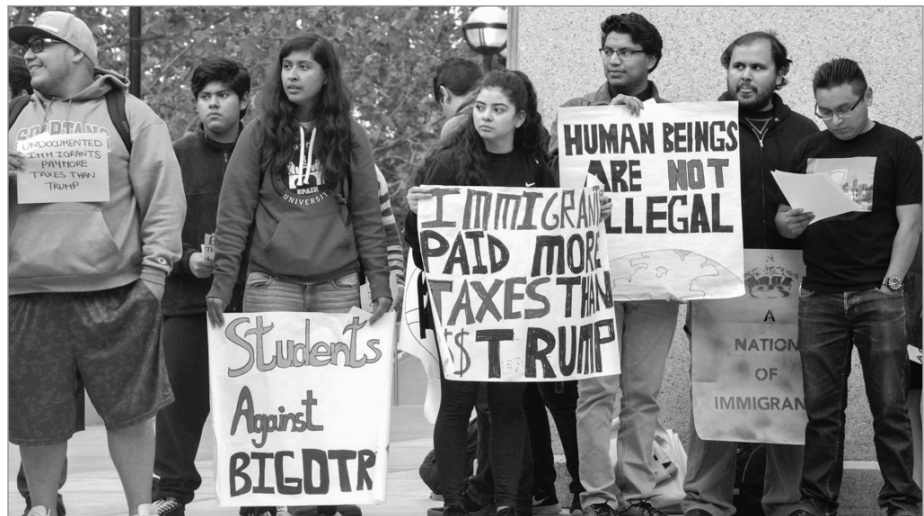 SPARTANS
UNDOCUMENTED
IMMIGRANTS
PAY MORE
TAXES THAN
TRUMP
SPAIN
UNIVERSITY
Students
Against
BIGOTR
IMMIGRAN
PAID MORE
TAXES THAN
$ TRUMP
HUMAN BEINGS
ARE NOT
ILLEGAL
A
NATION
OF
IMMIGRAN